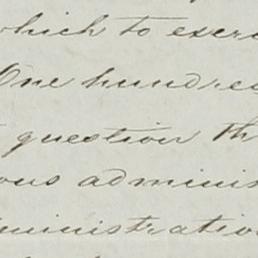 which to exerc
One hundred
question th
ous adminis
ministration